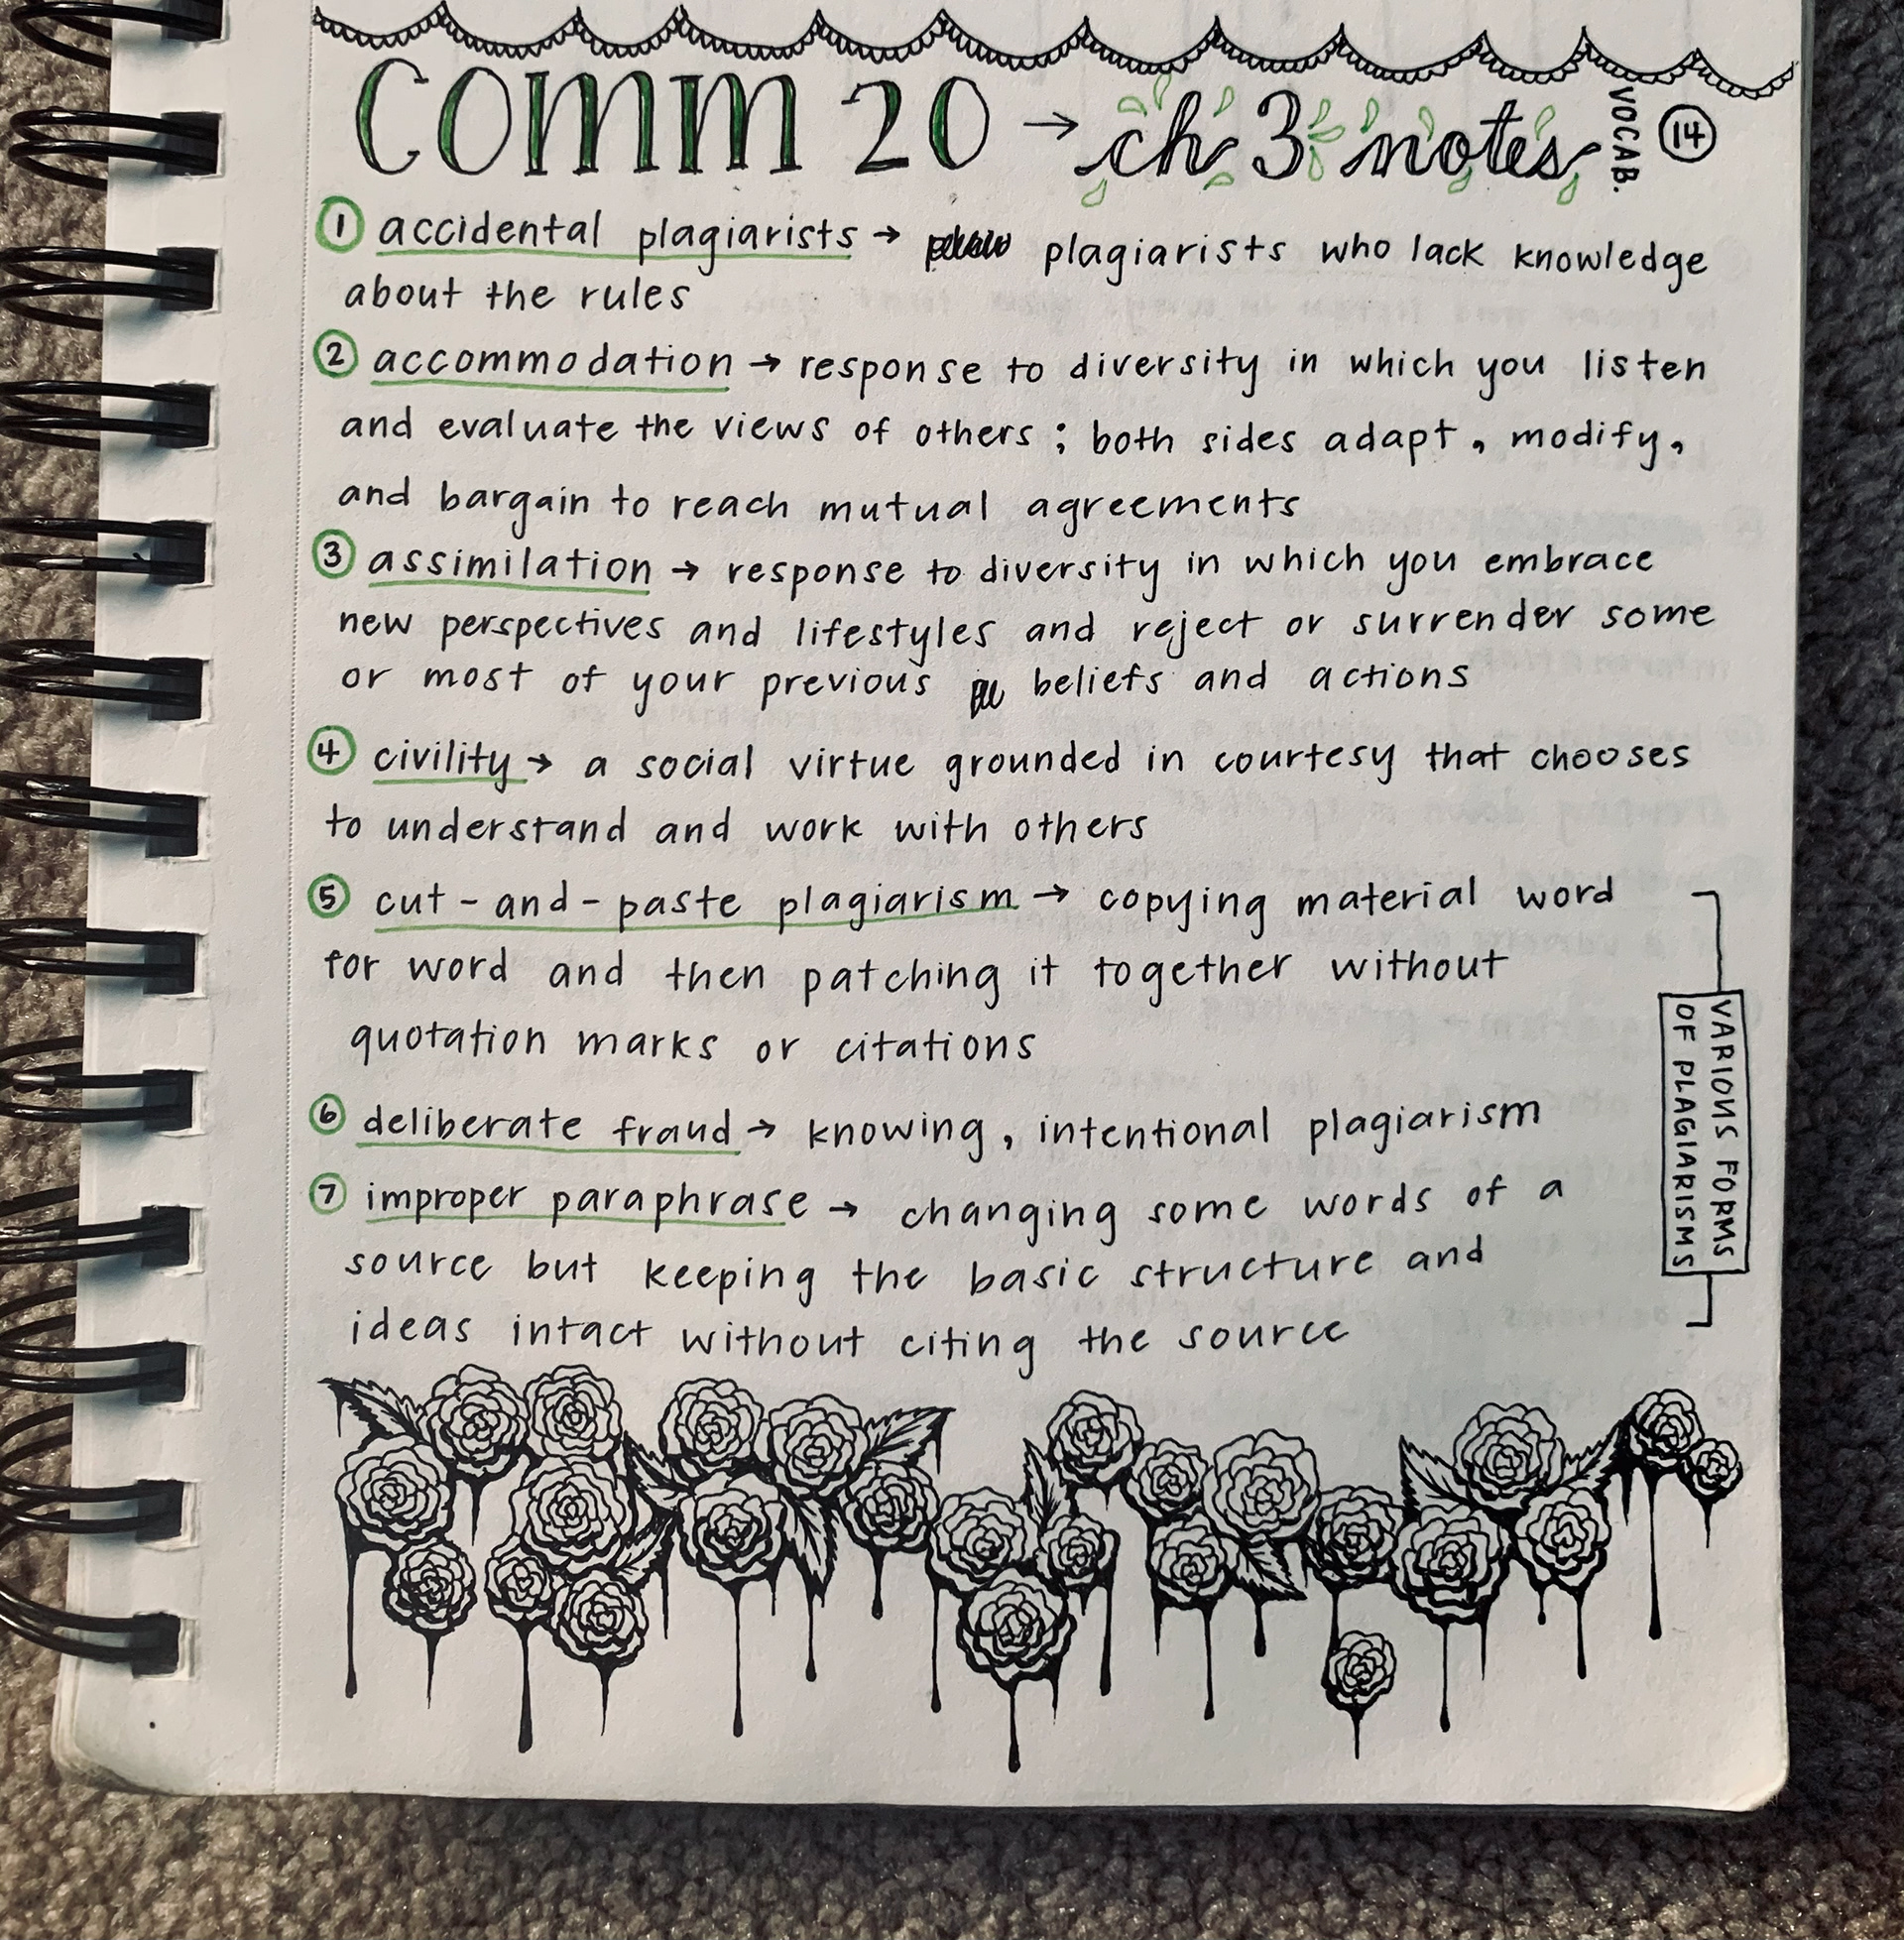 COMM 20 → ch 3 notes VOCAB. 14
1 accidental plagiarists → plagiarists who lack knowledge
about the rules
2 accommodation → response to diversity in which you listen
and evaluate the views of others; both sides adapt, modify,
and bargain to reach mutual agreements
3 assimilation → response to diversity in which you embrace
new perspectives and lifestyles and reject or surrender some
or most of your previous beliefs and actions
4 civility → a social virtue grounded in courtesy that chooses
to understand and work with others
5 cut-and-paste plagiarism → copying material word
for word and then patching it together without
quotation marks or citations
6 deliberate fraud → knowing, intentional plagiarism
7 improper paraphrase → changing some words of a
source but keeping the basic structure and
ideas intact without citing the source
VARIOUS FORMS
OF PLAGIARISMS